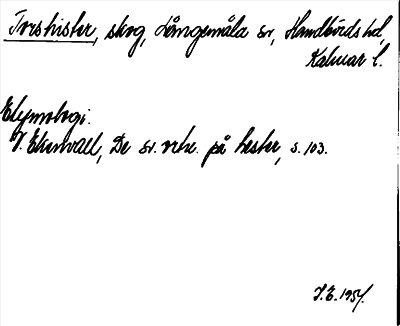 Torshister, skog, Långemåla sn, Handbörds hd,
Kalmar l.
Etymologi.
V. Ekenvall, De sv. ortn. på hester, s. 103.
V.E. 1957.